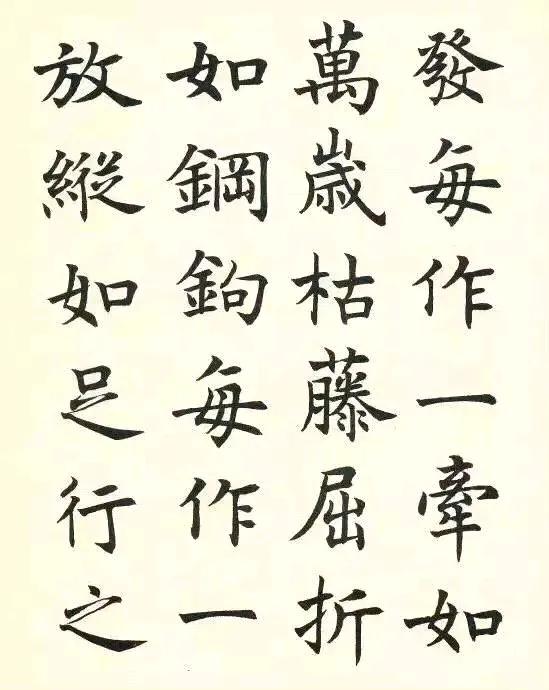 發每作一牽如
萬歳枯藤屈折
如鋼鉤每作一
放縱如足行之